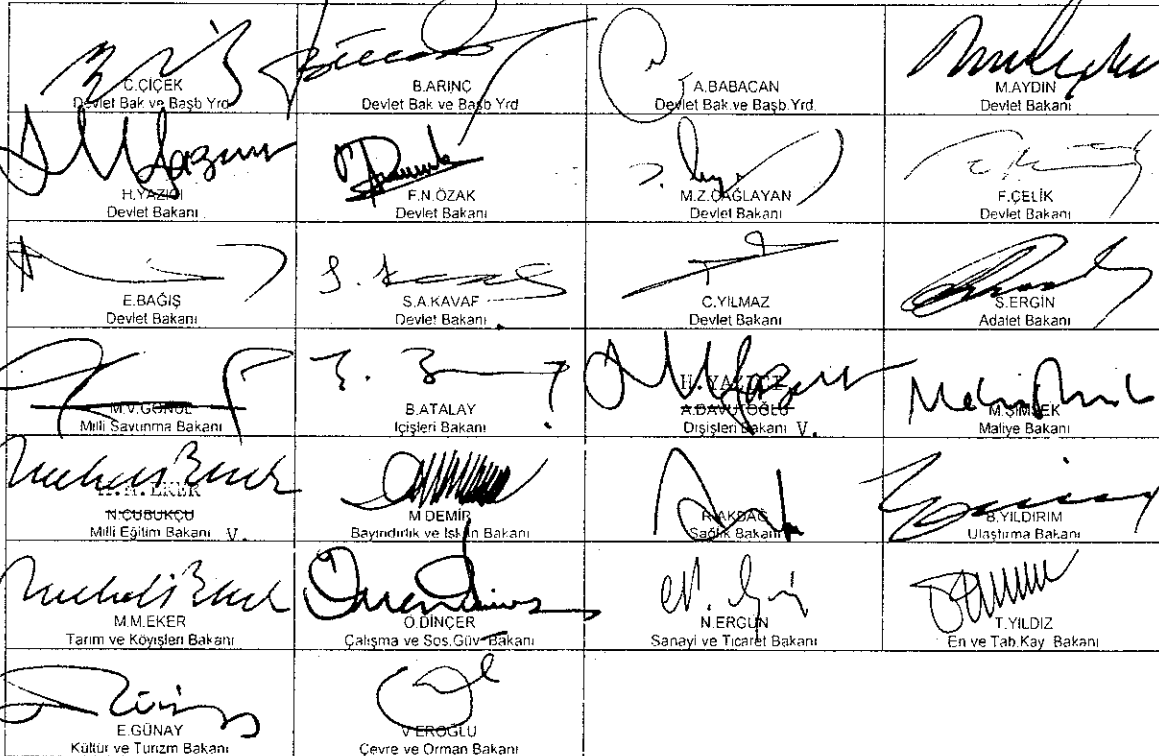 C.ÇİÇEK
Devlet Bak ve Başb Yrd
B.ARINC
Devlet Bak ve Başb Yrd
A.BABACAN
Devlet Bak.ve Başb.Yrd.
M.AYDIN
Devlet Bakanı
H.YAZICI
Devlet Bakanı
F.N.ÖZAK
Devlet Bakanı
M.Z.ÇAĞLAYAN
Devlet Bakanı
F.ÇELİK
Devlet Bakanı
E.BAĞIŞ
Devlet Bakanı
S.A.KAVAF
Devlet Bakanı
C.YILMAZ
Devlet Bakanı
S.ERGİN
Adalet Bakanı
M.V.GÖNÜL
Milli Savunma Bakanı
B.ATALAY
İçişleri Bakanı
H.YAZICI
A.DAVUTOĞLU
Dışişleri Bakanı V.
M.ŞİMŞEK
Maliye Bakanı
M.M.EKER
N.ÇUBUKÇU
Milli Eğitim Bakanı V.
M.DEMİR
Bayındırlık ve İskan Bakanı
R.AKDAĞ
Sağlık Bakanı
B.YILDIRIM
Ulaştırma Bakanı
M.M.EKER
Tarım ve Köyişleri Bakanı
Ö.DİNÇER
Çalışma ve Sos.Güv. Bakanı
N.ERGÜN
Sanayi ve Ticaret Bakanı
T.YILDIZ
En ve Tab.Kay. Bakanı
E.GÜNAY
Kültür ve Turizm Bakanı
V.EROĞLU
Çevre ve Orman Bakanı